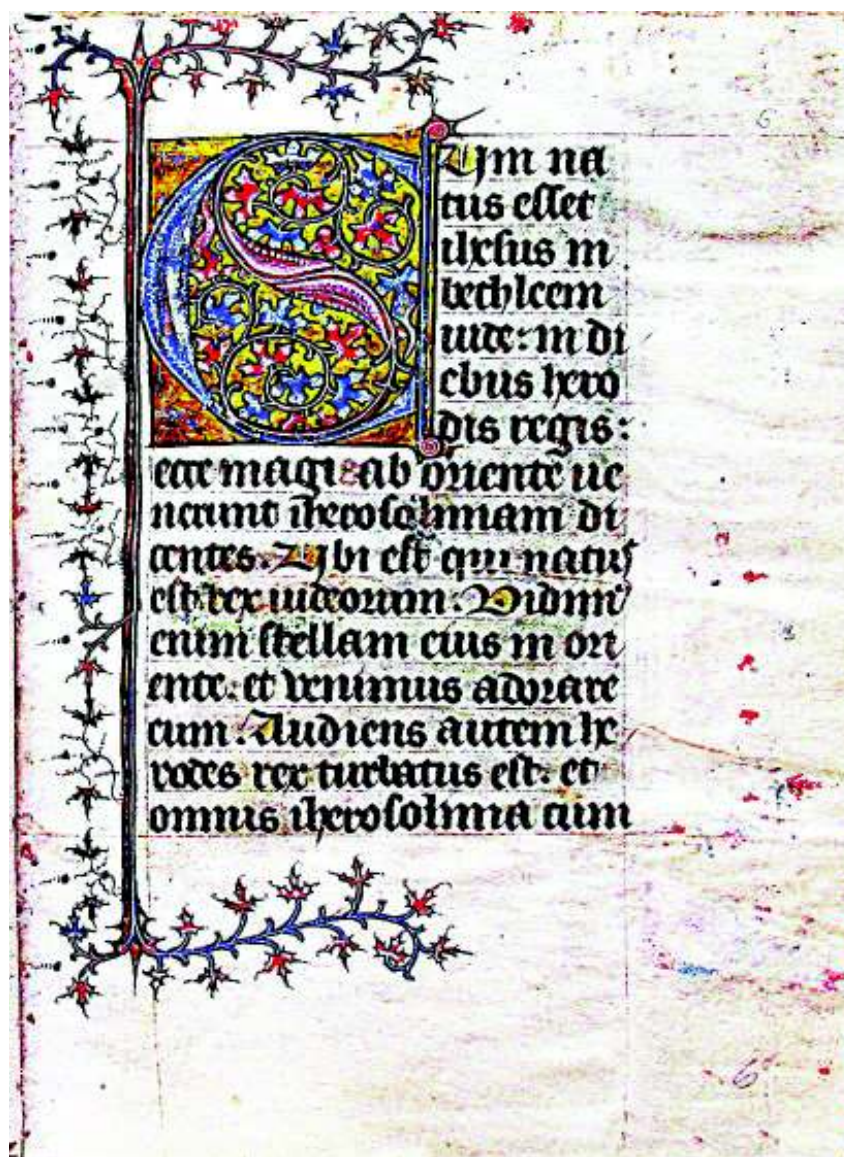 6
CUm na
tus esset
ihesus in
bethleem
iude: in di
ebus hero
dis regis:
ecce magi ab oriente ue
nerunt iherosolimam di
centes. Ubi est qui natus
est rex iudeorum. Vidim'
enim stellam eius in ori
ente. et venimus adorare
eum. Audiens autem he
rodes rex turbatus est. et
omnis iherosolima cum
6